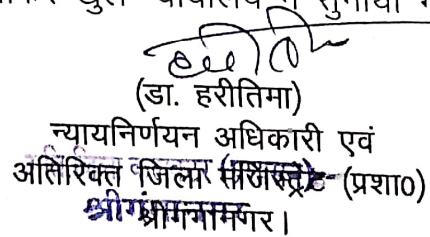 सुनाया
(डा. हरीतिमा)
न्यायनिर्णयन अधिकारी एवं
अतिरिक्त जिला मजिस्ट्रेट (प्रशा0)
श्रीगंगानगर।